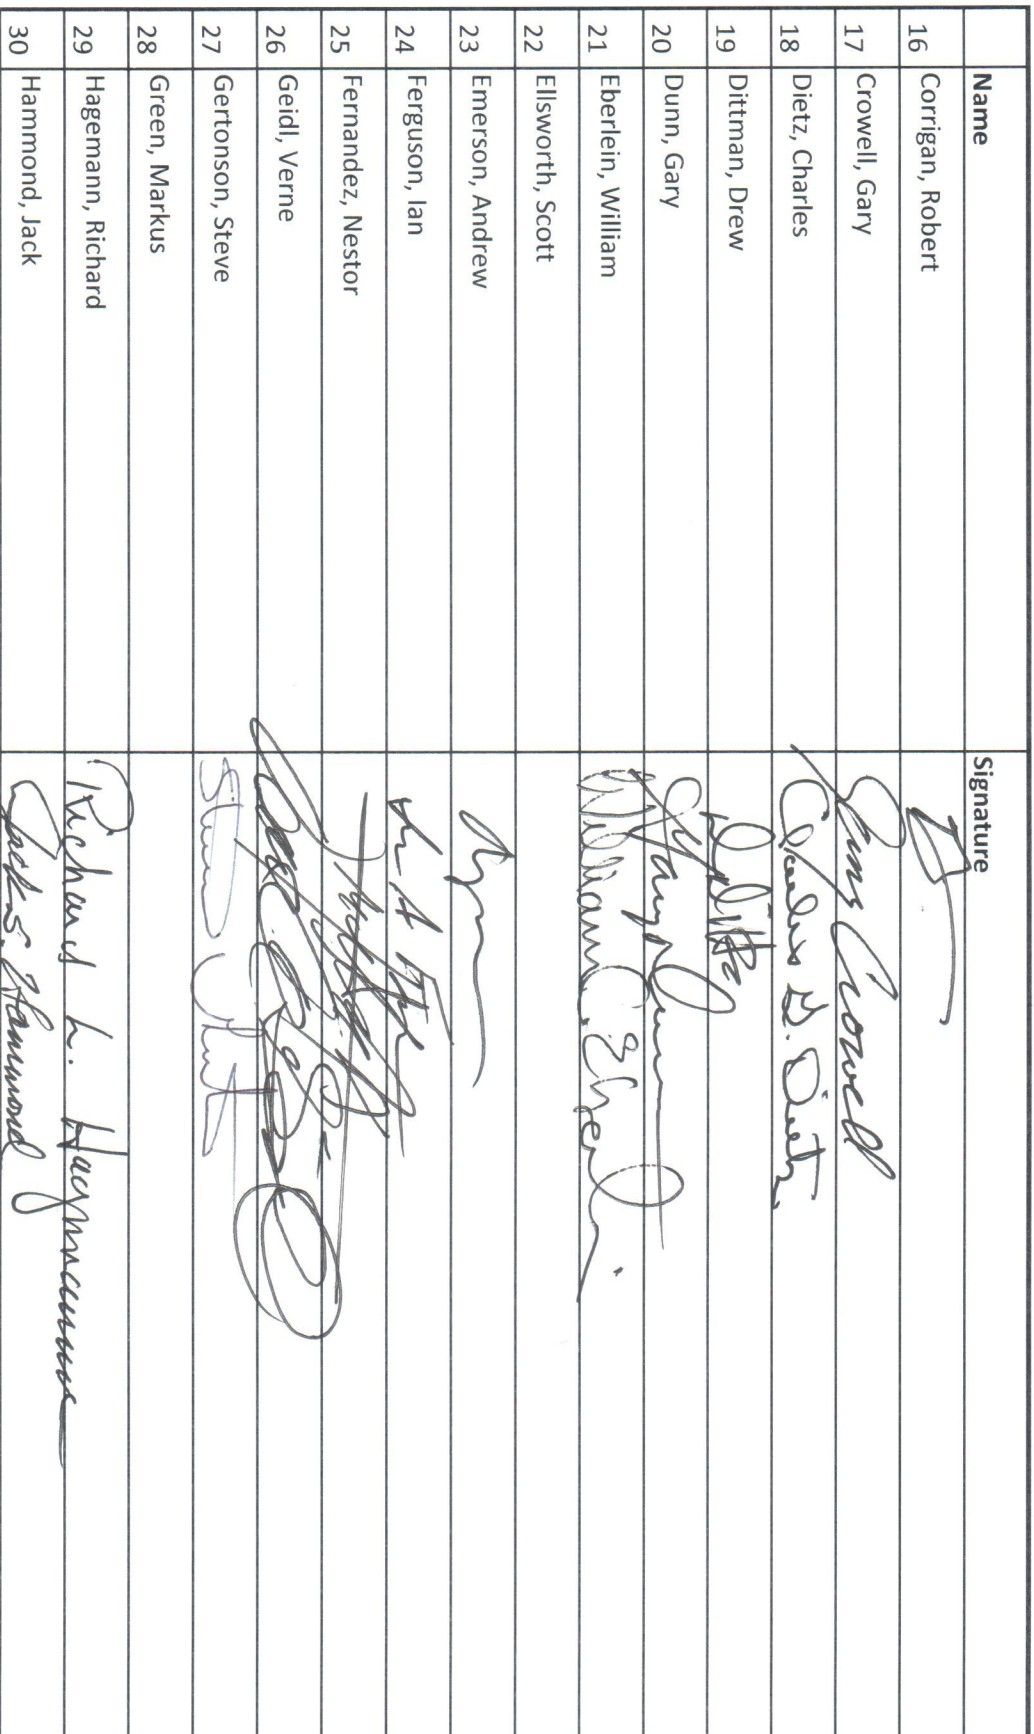 Name Signature
16 Corrigan, Robert
17 Crowell, Gary Gary Crowell
18 Dietz, Charles Charles D. Dietz
19 Dittman, Drew
20 Dunn, Gary Gary Dunn
21 Eberlein, William William C. Eberlein
22 Ellsworth, Scott
23 Emerson, Andrew
24 Ferguson, Ian
25 Fernandez, Nestor
26 Geidl, Verne
27 Gertonson, Steve
28 Green, Markus
29 Hagemann, Richard Richard L. Hagemann
30 Hammond, Jack Jack S. Hammond